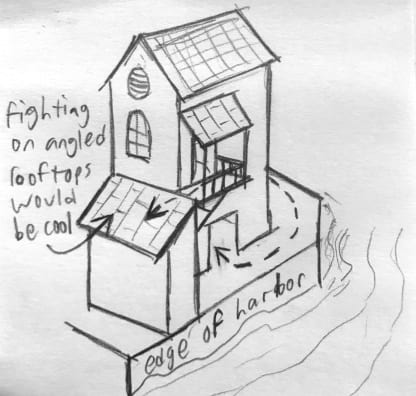 fighting
on angled
rooftops
would
be cool
edge of harbor